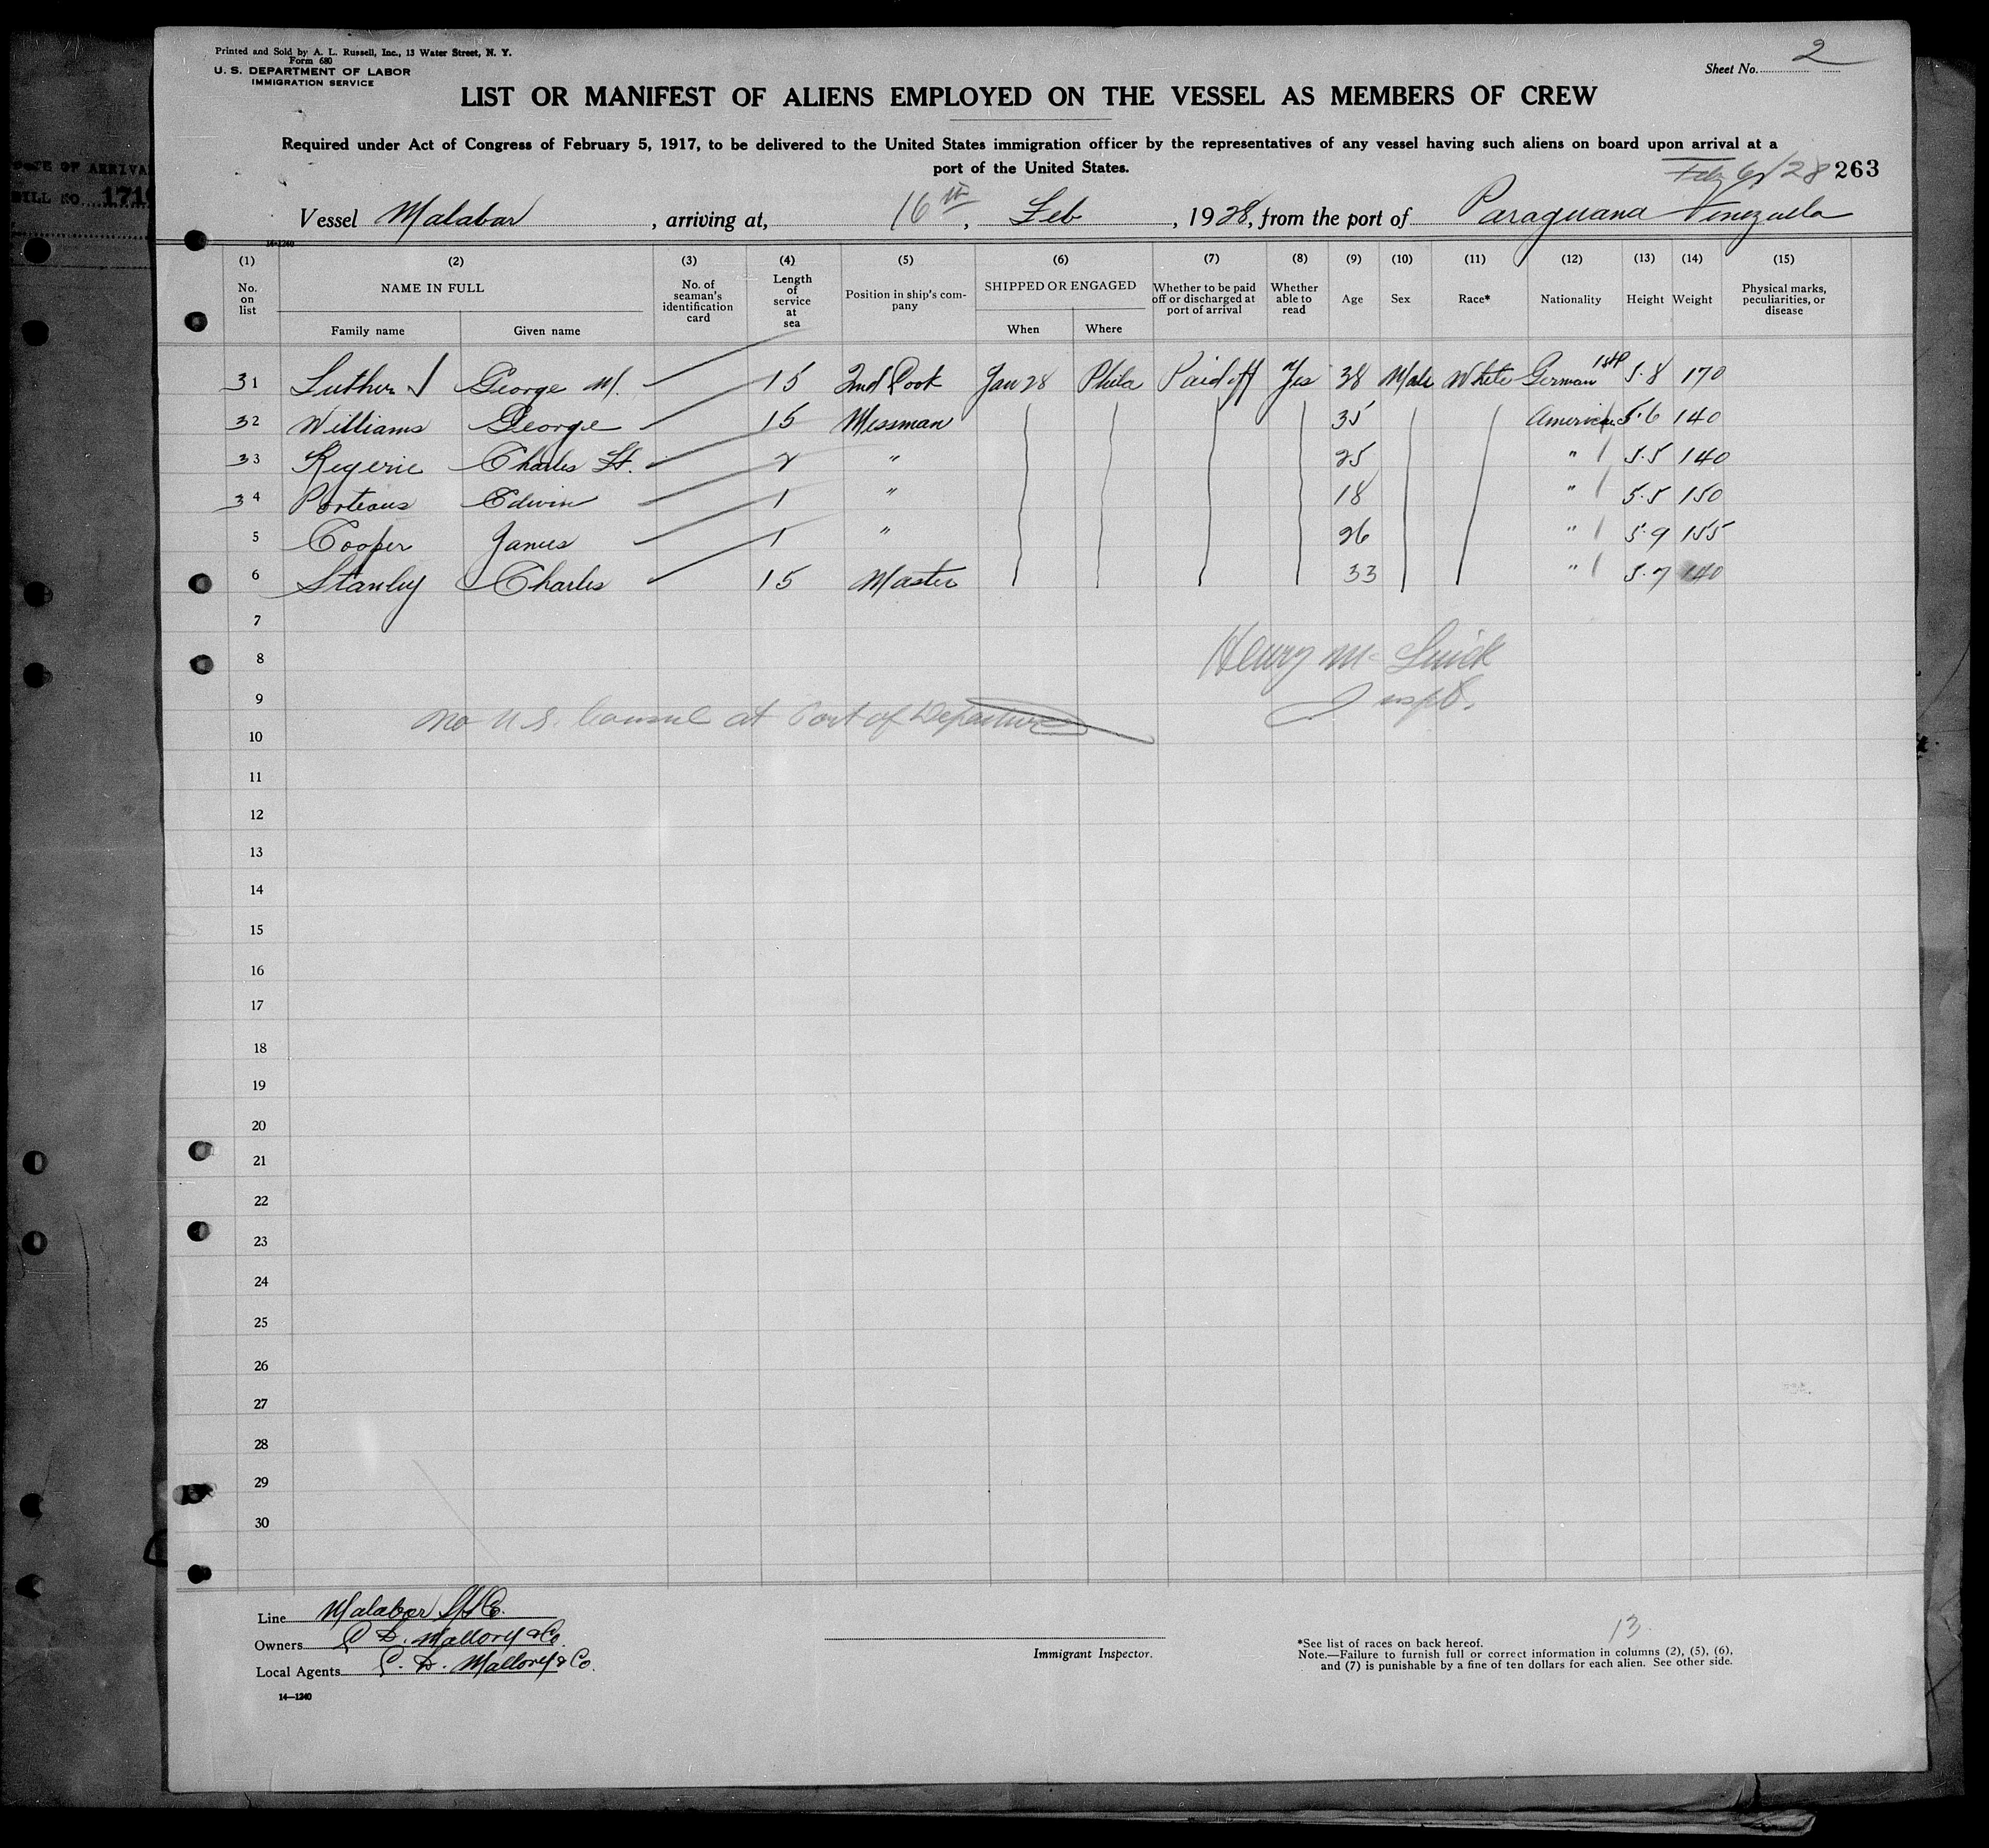 Printed and Sold by A. L. Russell, Inc., 13 Water Street, N. Y.
Form 680
U. S. DEPARTMENT OF LABOR
IMMIGRATION SERVICE
Sheet No. 2
LIST OR MANIFEST OF ALIENS EMPLOYED ON THE VESSEL AS MEMBERS OF CREW
Required under Act of Congress of February 5, 1917, to be delivered to the United States immigration officer by the representatives of any vessel having such aliens on board upon arrival at a
port of the United States.
DATE OF ARRIVA
BILL NO. 171
Feby 6/28 263
Vessel Malabar, arriving at, 16th, Feb, 1928, from the port of Paraguana Venezuela
14-1240
(1) (2) (3) (4) (5) (6) (7) (8) (9) (10) (11) (12) (13) (14) (15)
No. on list NAME IN FULL No. of seaman's identification card Length of service at sea Position in ship's company SHIPPED OR ENGAGED Whether to be paid off or discharged at port of arrival Whether able to read Age Sex Race* Nationality Height Weight Physical marks, peculiarities, or disease
Family name Given name When Where
31 Luther George M. 15 2nd Cook Jan 28 Phila Paid off Yes 38 Male White German 1stP 5.8 170
32 Williams George 15 Messman 35 American 5.6 140
33 Charles H. 2 " 25 " 5.5 140
34 Porteous Edwin 1 " 18 " 5.5 150
5 Cooper James 1 " 26 " 5.9 155
6 Stanley Charles 15 Master 33 " 5.7 140
7
8 Henry Mc
9 Inspt.
no U.S. Consul at Port of Departure
10
11
12
13
14
15
16
17
18
19
20
21
22
23
24
25
26
27
28
29
30
Line Malabar SS Co.
Owners C. D. Mallory & Co.
Local Agents C. D. Mallory & Co.
14—1240
Immigrant Inspector.
13
*See list of races on back hereof.
Note.—Failure to furnish full or correct information in columns (2), (5), (6),
and (7) is punishable by a fine of ten dollars for each alien. See other side.